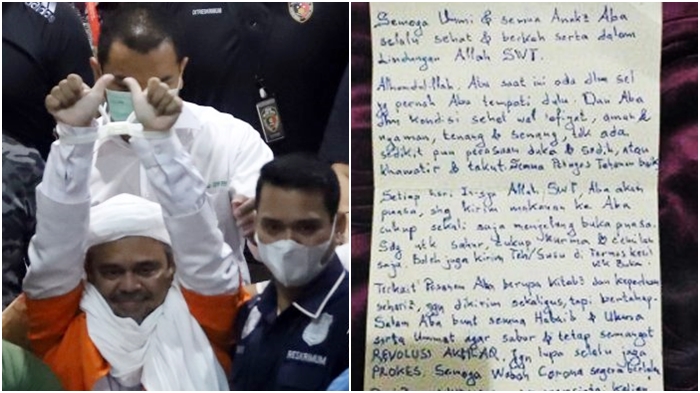 DITRESKRIMUM
RESKRIMUM
Semoga Ummi & semua Anak2 Aba
selalu sehat & berkah serta dalam
Lindungan Allah SWT.
Alhamdulillah, Aba saat ini ada dlm sel
yg pernah Aba tempati dulu. Dan Aba
dlm kondisi sehat wal afiyat, aman &
nyaman, tenang & senang, tdk ada
sedikit pun perasaan duka & sedih, atau
khawatir & takut. Semua Petugas Tahanan baik
Setiap hari In-sya Allah SWT, Aba akan
puasa, shg kirim makanan ke Aba
cukup sekali saja menjelang buka puasa.
Sdg utk sahur, cukup kurma & cemilan
saja. Boleh juga kirim Teh/Susu di Termos kecil
utk buka.
Terkait Pesanan Aba berupa kitab2 dan keperluan
sehari2, jgn dikirim sekaligus, tapi bertahap.
Salam Aba buat semua Habaib & Ulama
serta Ummat agar sabar & tetap semangat
REVOLUSI AKHLAQ. Jgn lupa selalu jaga
PROKES. Semoga Wabah Corona segera berlalu